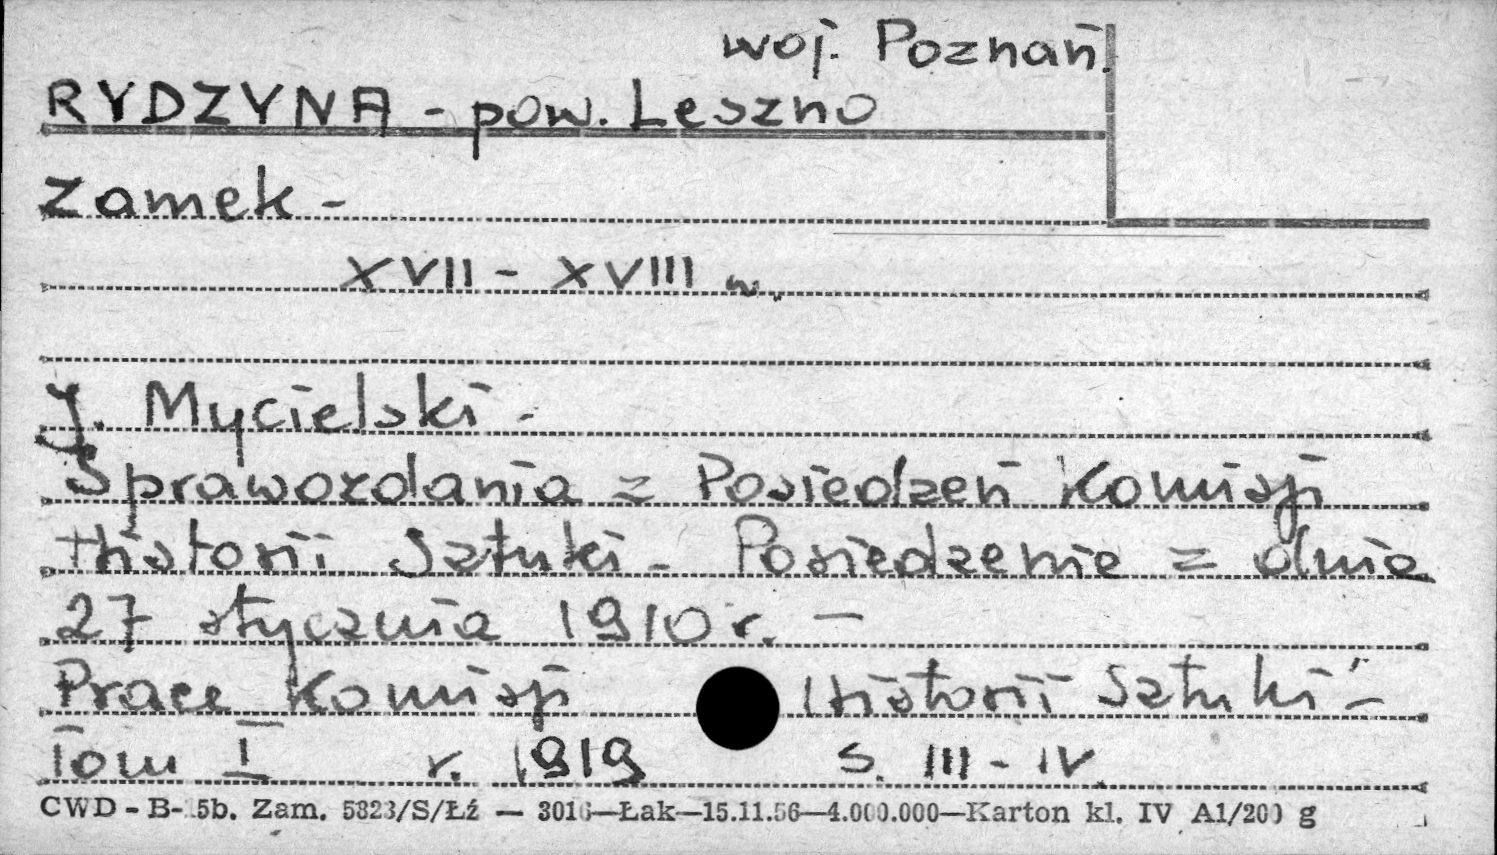 woj. Poznań.
RYDZYNA - pow. Leszno
Zamek -
XVII - XVIII w.
J. Mycielski -
Sprawozdania z Posiedzeń Komisji
Historii Sztuki - Posiedzenie z dnia
27 stycznia 1910 r. -
Prace Komisji Historii Sztuki -
Tom I r. 1919 s. III - IV.
CWD - B- 5b. Zam. 5823/S/Łź — 3016—Łak—15.11.56—4.000.000—Karton kl. IV A1/200 g